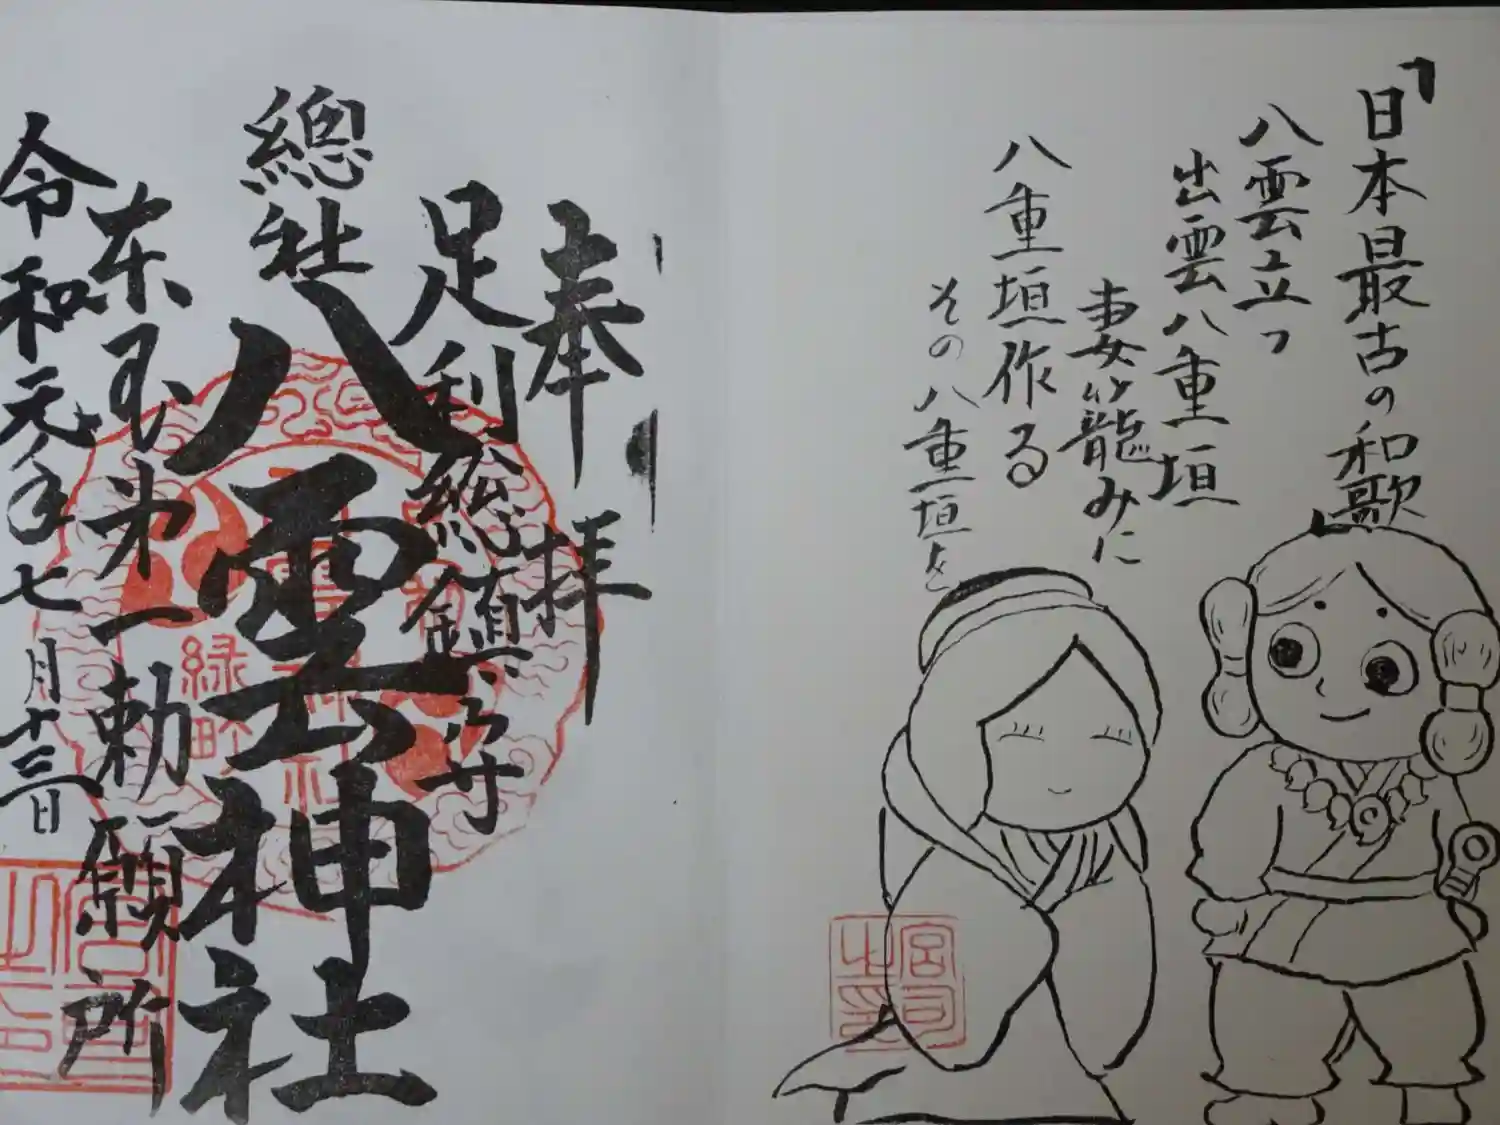 「日本最古の和歌
八雲立つ
出雲八重垣
妻籠みに
八重垣作る
その八重垣を
奉拝
足利総鎮守
總社
八雲神社
東國第一勅願所
令和元年七月十三日
宮司之印
宮司之印